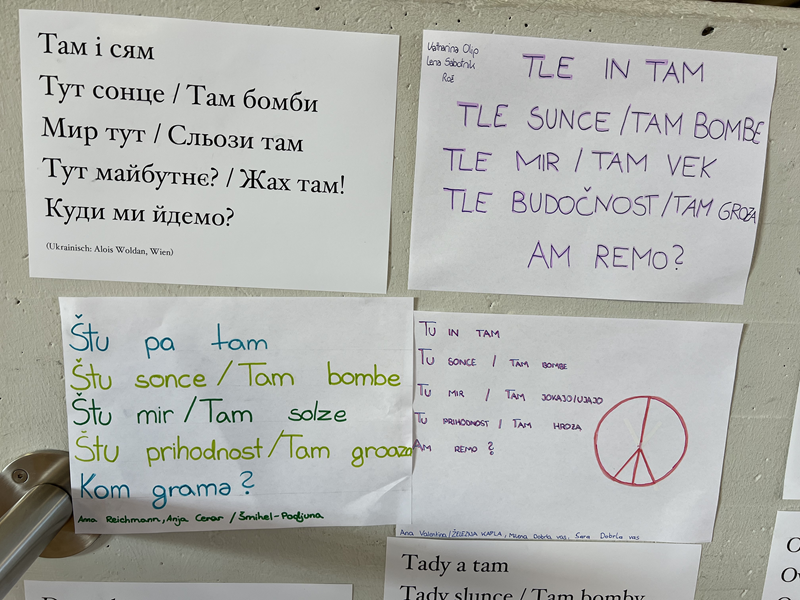 Там і сям
Тут сонце / Там бомби
Мир тут / Сльози там
Тут майбутнє? / Жах там!
Куди ми йдемо?
(Ukrainisch: Alois Woldan, Wien)
Katharina Olip
Lena Sabotnik
Rož
TLE IN TAM
TLE SUNCE / TAM BOMBE
TLE MIR / TAM VEK
TLE BUDOČNOST / TAM GROZA
AM REMO?
Štu pa tam
Štu sonce / Tam bombe
Štu mir / Tam solze
Štu prihodnost / Tam grooza
Kom gramə?
Ana Reichmann, Anja Cerar / Šmihel-Podjuna
TU IN TAM
TU SONCE / TAM BOMBE
TU MIR / TAM JOKAJO/UJAJO
TU PRIHODNOST / TAM HROZA
AM REMO?
Ana Valentina / ŽELEZNA KAPLA, Milena Dobrla vas, Sara Dobrla vas
Tady a tam
Tady slunce / Tam bomby